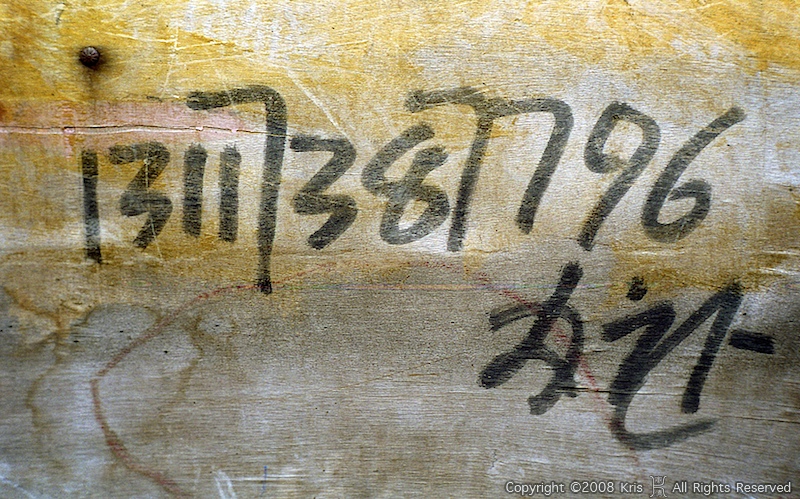 13117387796
办证
Copyright ©2008 Kris All Rights Reserved